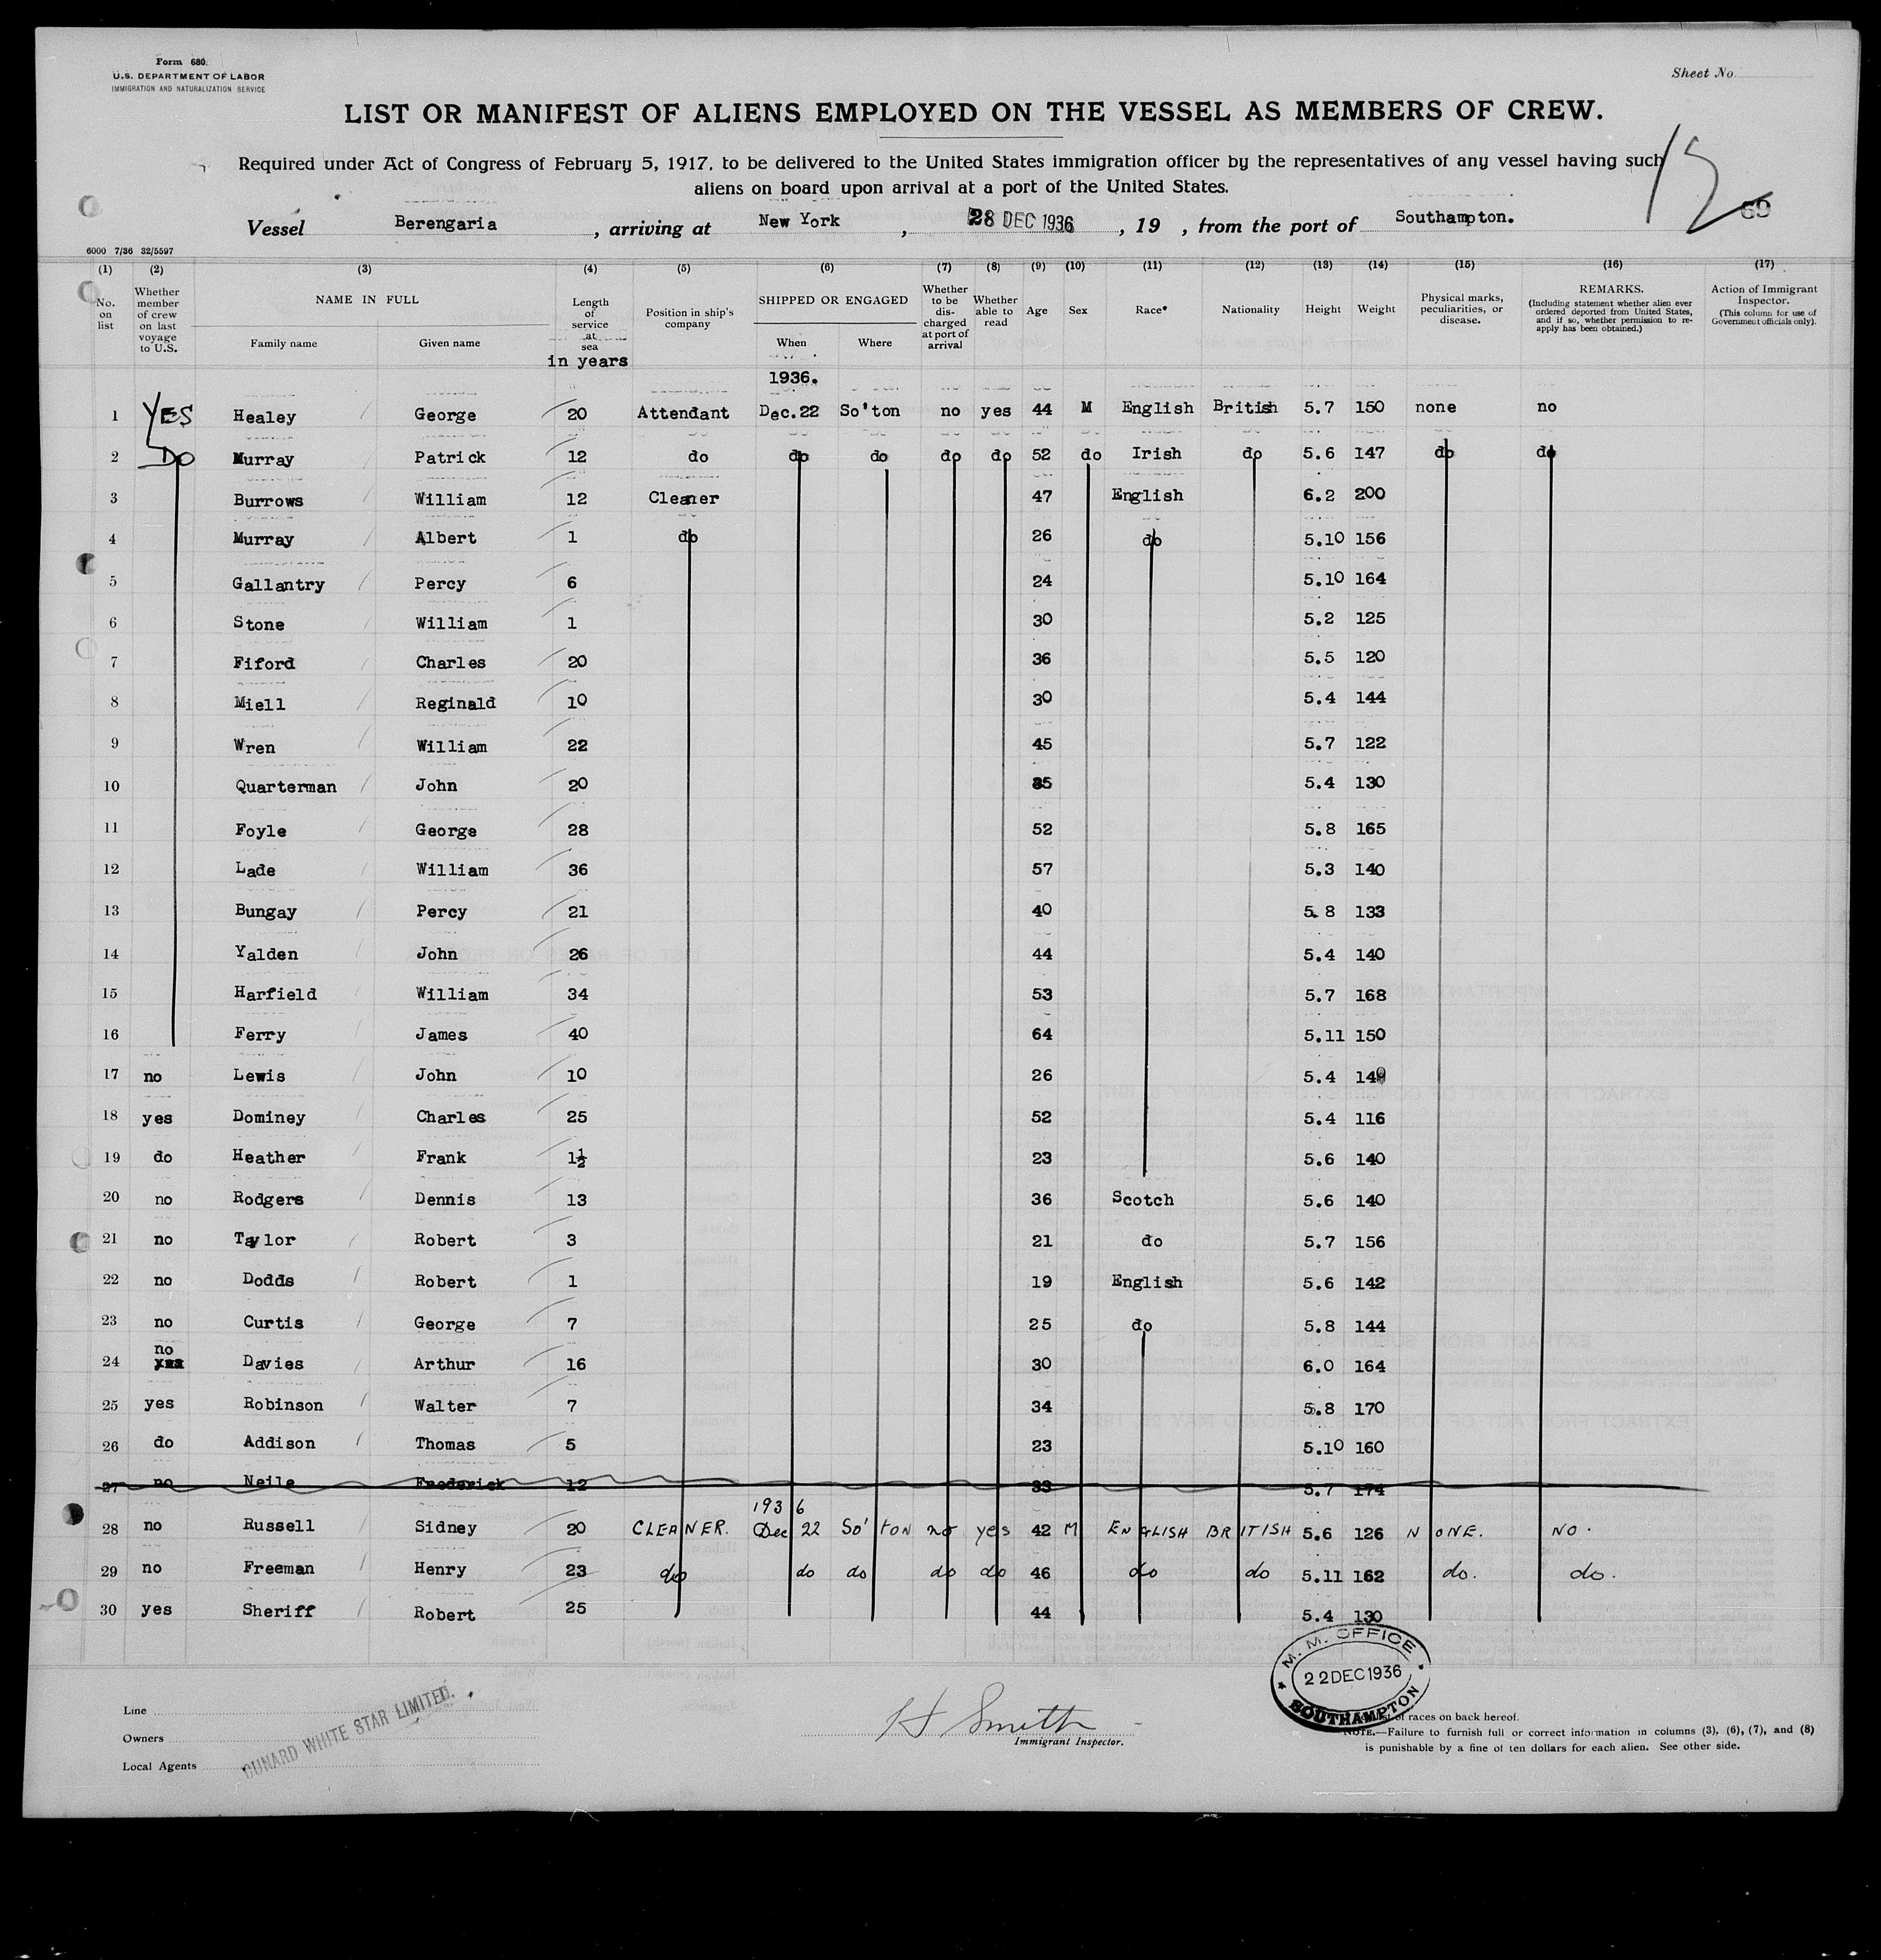 Form 680.
U.S. DEPARTMENT OF LABOR
IMMIGRATION AND NATURALIZATION SERVICE
Sheet No.
LIST OR MANIFEST OF ALIENS EMPLOYED ON THE VESSEL AS MEMBERS OF CREW.
Required under Act of Congress of February 5, 1917, to be delivered to the United States immigration officer by the representatives of any vessel having such
aliens on board upon arrival at a port of the United States.
12 69
Vessel Berengaria, arriving at New York, 28 DEC 1936, 19 , from the port of Southampton.
6000 7/36 32/5597
(1) (2) (3) (4) (5) (6) (7) (8) (9) (10) (11) (12) (13) (14) (15) (16) (17)
No. on list
Whether member of crew on last voyage to U.S.
NAME IN FULL
Family name Given name
Length of service at sea
in years
Position in ship's company
SHIPPED OR ENGAGED
When Where
Whether to be discharged at port of arrival
Whether able to read
Age Sex Race* Nationality Height Weight
Physical marks, peculiarities, or disease.
REMARKS.
(Including statement whether alien ever ordered deported from United States, and if so, whether permission to reapply has been obtained.)
Action of Immigrant Inspector.
(This column for use of Government officials only).
1936.
1 YES Healey George 20 Attendant Dec.22 So'ton no yes 44 M English British 5.7 150 none no
2 DO Murray Patrick 12 do do do do do 52 do Irish do 5.6 147 do do
3 Burrows William 12 Cleaner 47 English 6.2 200
4 Murray Albert 1 do 26 do 5.10 156
5 Gallantry Percy 6 24 5.10 164
6 Stone William 1 30 5.2 125
7 Fiford Charles 20 36 5.5 120
8 Miell Reginald 10 30 5.4 144
9 Wren William 22 45 5.7 122
10 Quarterman John 20 35 5.4 130
11 Foyle George 28 52 5.8 165
12 Lade William 36 57 5.3 140
13 Bungay Percy 21 40 5.8 133
14 Yalden John 26 44 5.4 140
15 Harfield William 34 53 5.7 168
16 Ferry James 40 64 5.11 150
17 no Lewis John 10 26 5.4 140
18 yes Dominey Charles 25 52 5.4 116
19 do Heather Frank 1½ 23 5.6 140
20 no Rodgers Dennis 13 36 Scotch 5.6 140
21 no Taylor Robert 3 21 do 5.7 156
22 no Dodds Robert 1 19 English 5.6 142
23 no Curtis George 7 25 do 5.8 144
24 no Davies Arthur 16 30 6.0 164
25 yes Robinson Walter 7 34 5.8 170
26 do Addison Thomas 5 23 5.10 160
27 no Neile Frederick 12 33 5.7 174
1936
28 no Russell Sidney 20 CLEANER. Dec 22 So'TON no yes 42 M ENGLISH BRITISH 5.6 126 NONE. NO.
29 no Freeman Henry 23 do do do do do 46 do do 5.11 162 do. do.
30 yes Sheriff Robert 25 44 5.4 130
M. M. OFFICE
22 DEC 1936
SOUTHAMPTON
Line
Owners
Local Agents
CUNARD WHITE STAR LIMITED.
H Smith
Immigrant Inspector.
of races on back hereof.
NOTE.—Failure to furnish full or correct information in columns (3), (6), (7), and (8)
is punishable by a fine of ten dollars for each alien. See other side.